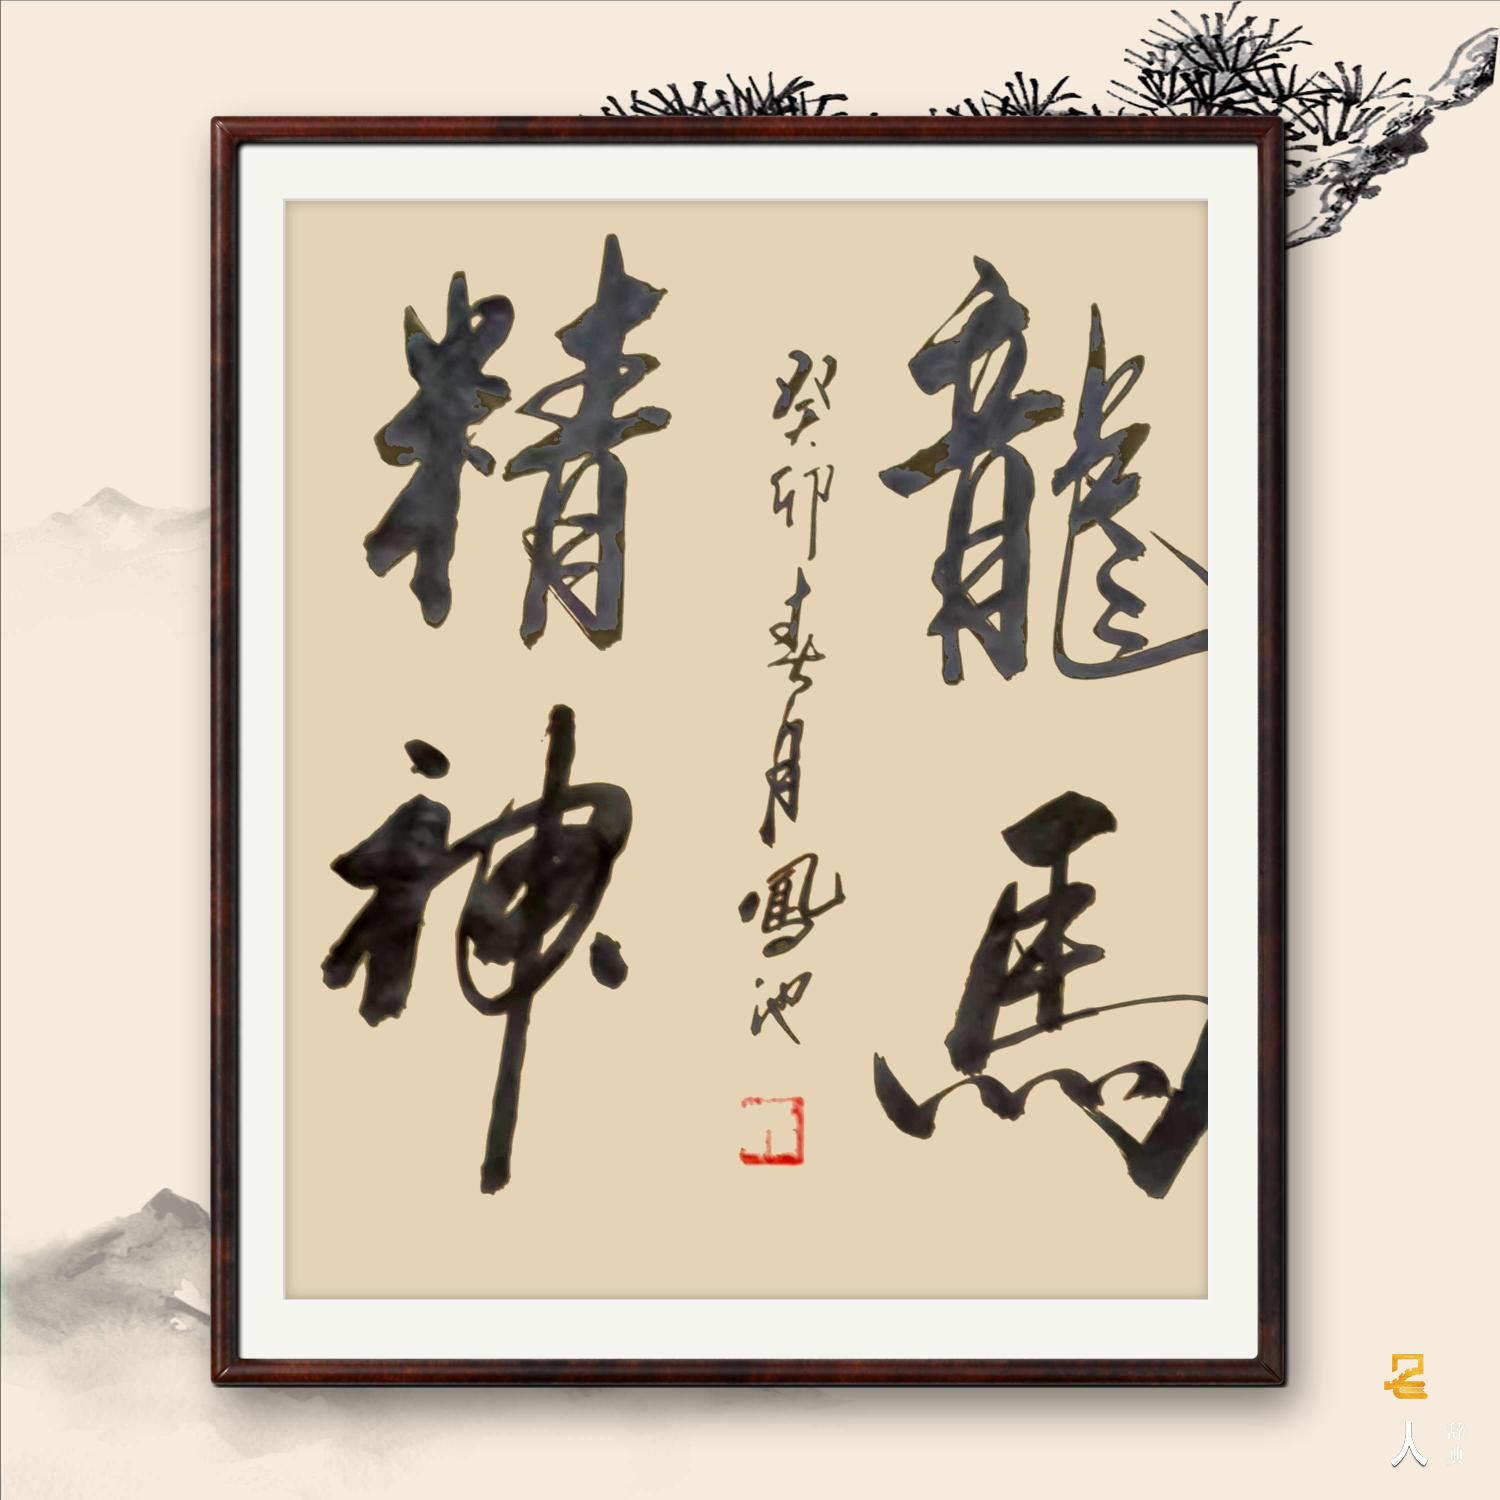 龍馬
癸卯春月鳳池
精神
名人辞典